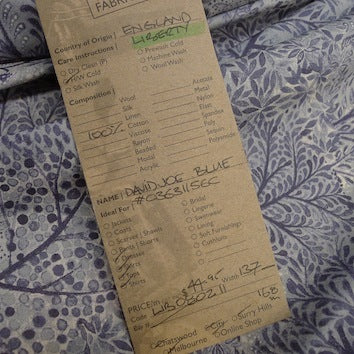 FABRI
Country of Origin | ENGLAND
Care Instructions | LIBERTY
Dry Clean (P) Prewash Cold
HW Cold Machine Wash
Silk Wash Wool Wash
Composition |
Wool Acetate
Silk Metal
Linen Nylon
100% Cotton Elas
Viscose Spandex
Rayon Poly
Sequin
Modal Polyamide
Acrylic
NAME | DAVID JOE BLUE
Ideal For | #03631156C
Jackets Bridal
Coats Lingerie
Scarves | Shawls Swimwear
Pants | Shorts Lining
Dresses Soft Furnishings
Skirts Cushions
Tops
Shirts
PRICE/m $44.95 Width 137
Code LIB050211
Bar # 168
Chatswood City Surry Hills
Melbourne Online Shop